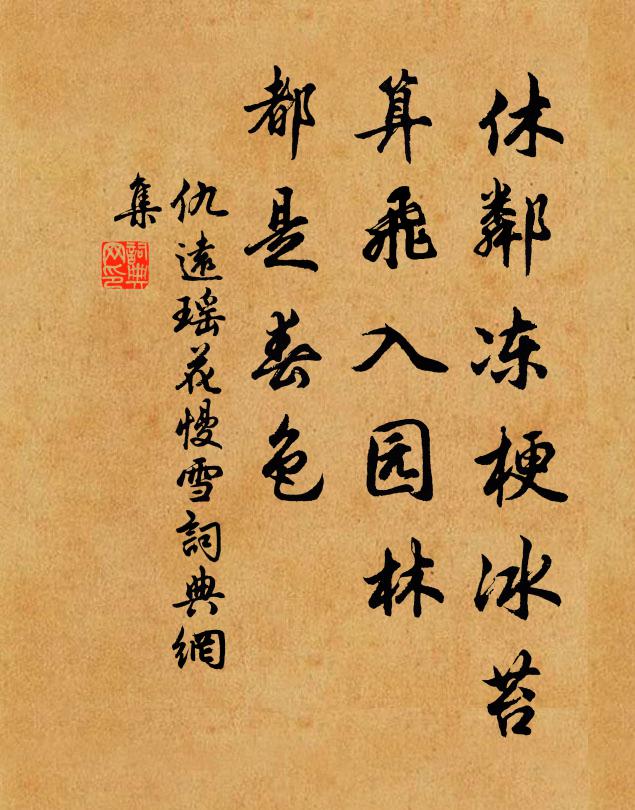 休鄰冻梗冰苔
算飛入园林
都是春色
仇遠瑶花慢雪詞典網
集
詞典网印